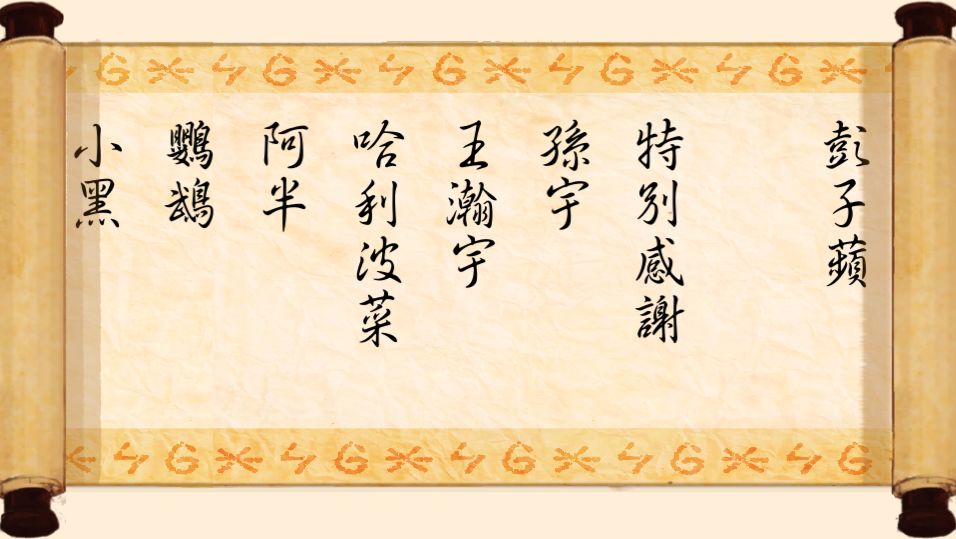 彭子蘋
特別感謝
孫宇
王瀚宇
哈利波菜
阿半
鸚鵡
小黑